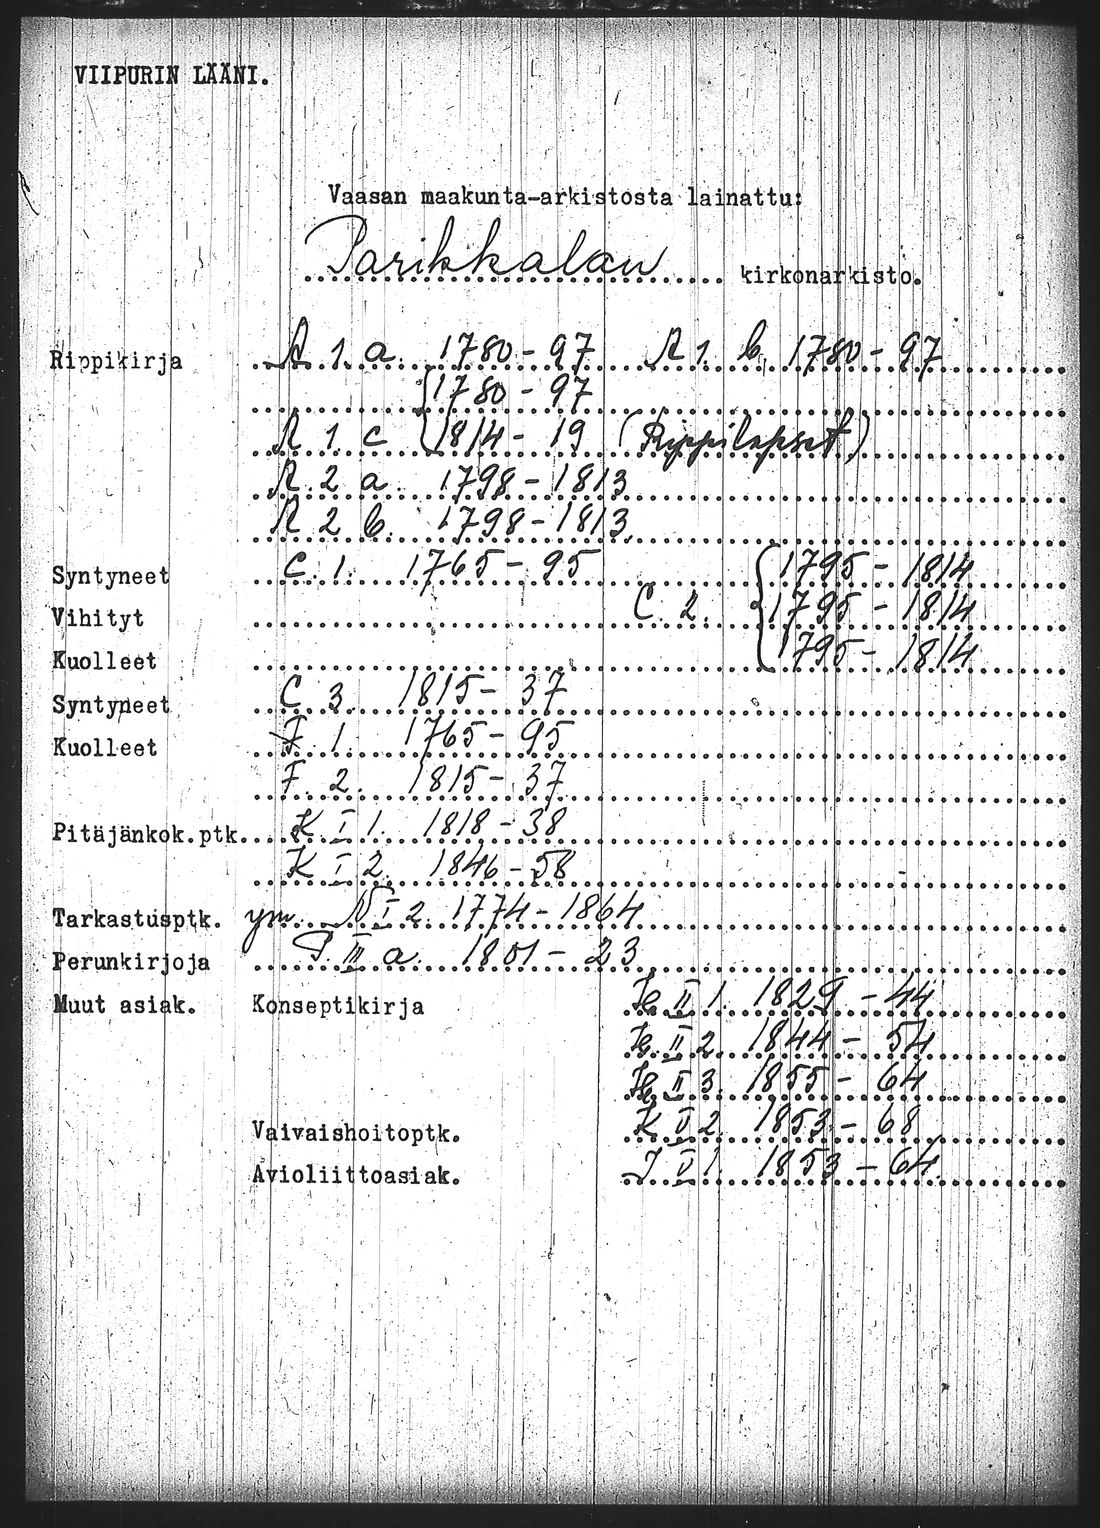 VIIPURIN LÄÄNI.
Vaasan maakunta-arkistosta lainattu:
Parikkalan kirkonarkisto.
Rippikirja A 1 a. 1780-97 A 1. b. 1780-97
1780-97
A 1 c 1814-19 (Rippilapset)
A 2 a 1798-1813
A 2 b. 1798-1813
Syntyneet C.1. 1765-95 1795-1814
Vihityt C.2. 1795-1814
Kuolleet 1795-1814
Syntyneet C 3. 1815-37
Kuolleet F 1. 1765-95
F 2. 1815-37
Pitäjänkok.ptk. K I 1. 1818-38
K I 2. 1846-58
Tarkastusptk. ym. N I 2. 1774-1864
Perunkirjoja P. III a. 1801-23
Muut asiak. Konseptikirja II 1. 1829-44
II 2. 1844-54
II 3. 1855-64
Vaivaishoitoptk. K V 2. 1853-68
Avioliittoasiak. J V 1. 1853-64